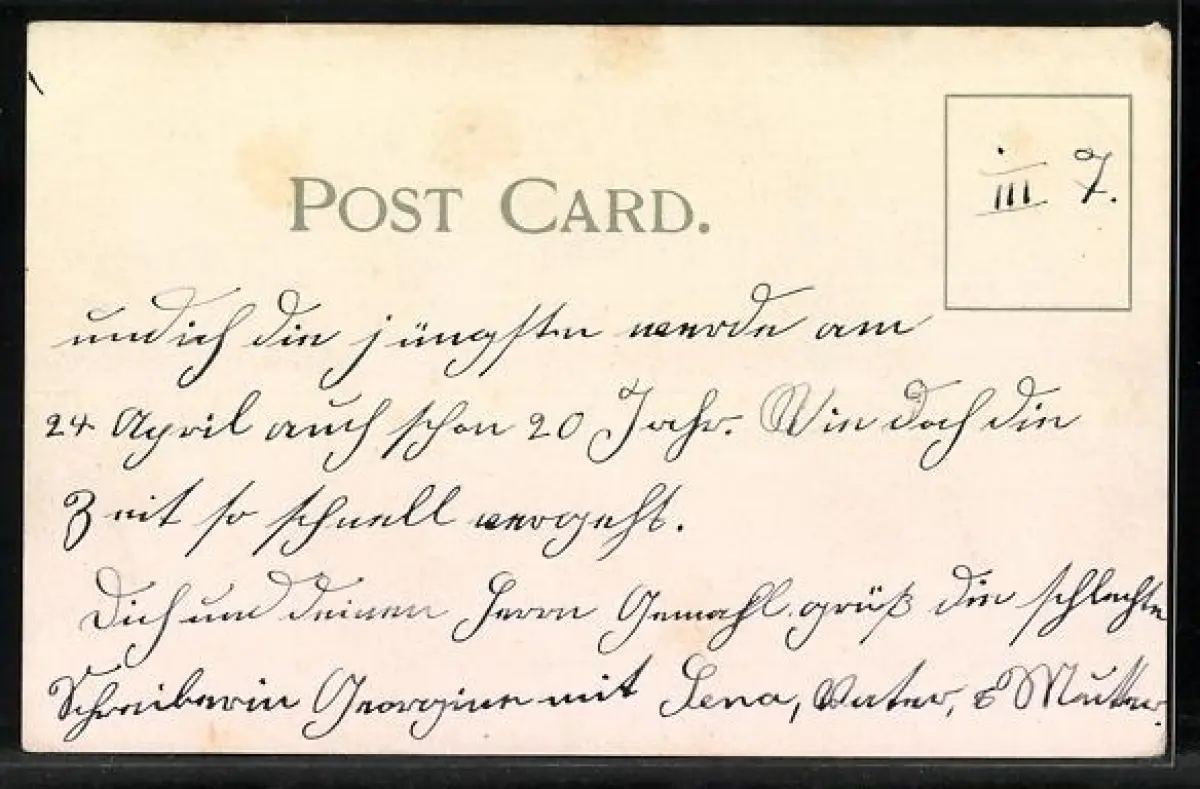 POST CARD.
III 7.
und ich die jüngste werde am
24 April auch schon 20 Jahr. Wie doch die
Zeit so schnell vergeht.
Dich und deinen Herrn Gemahl grüß die schlechte
Schreiberin Georgine mit Lena, Vater, & Mutter.